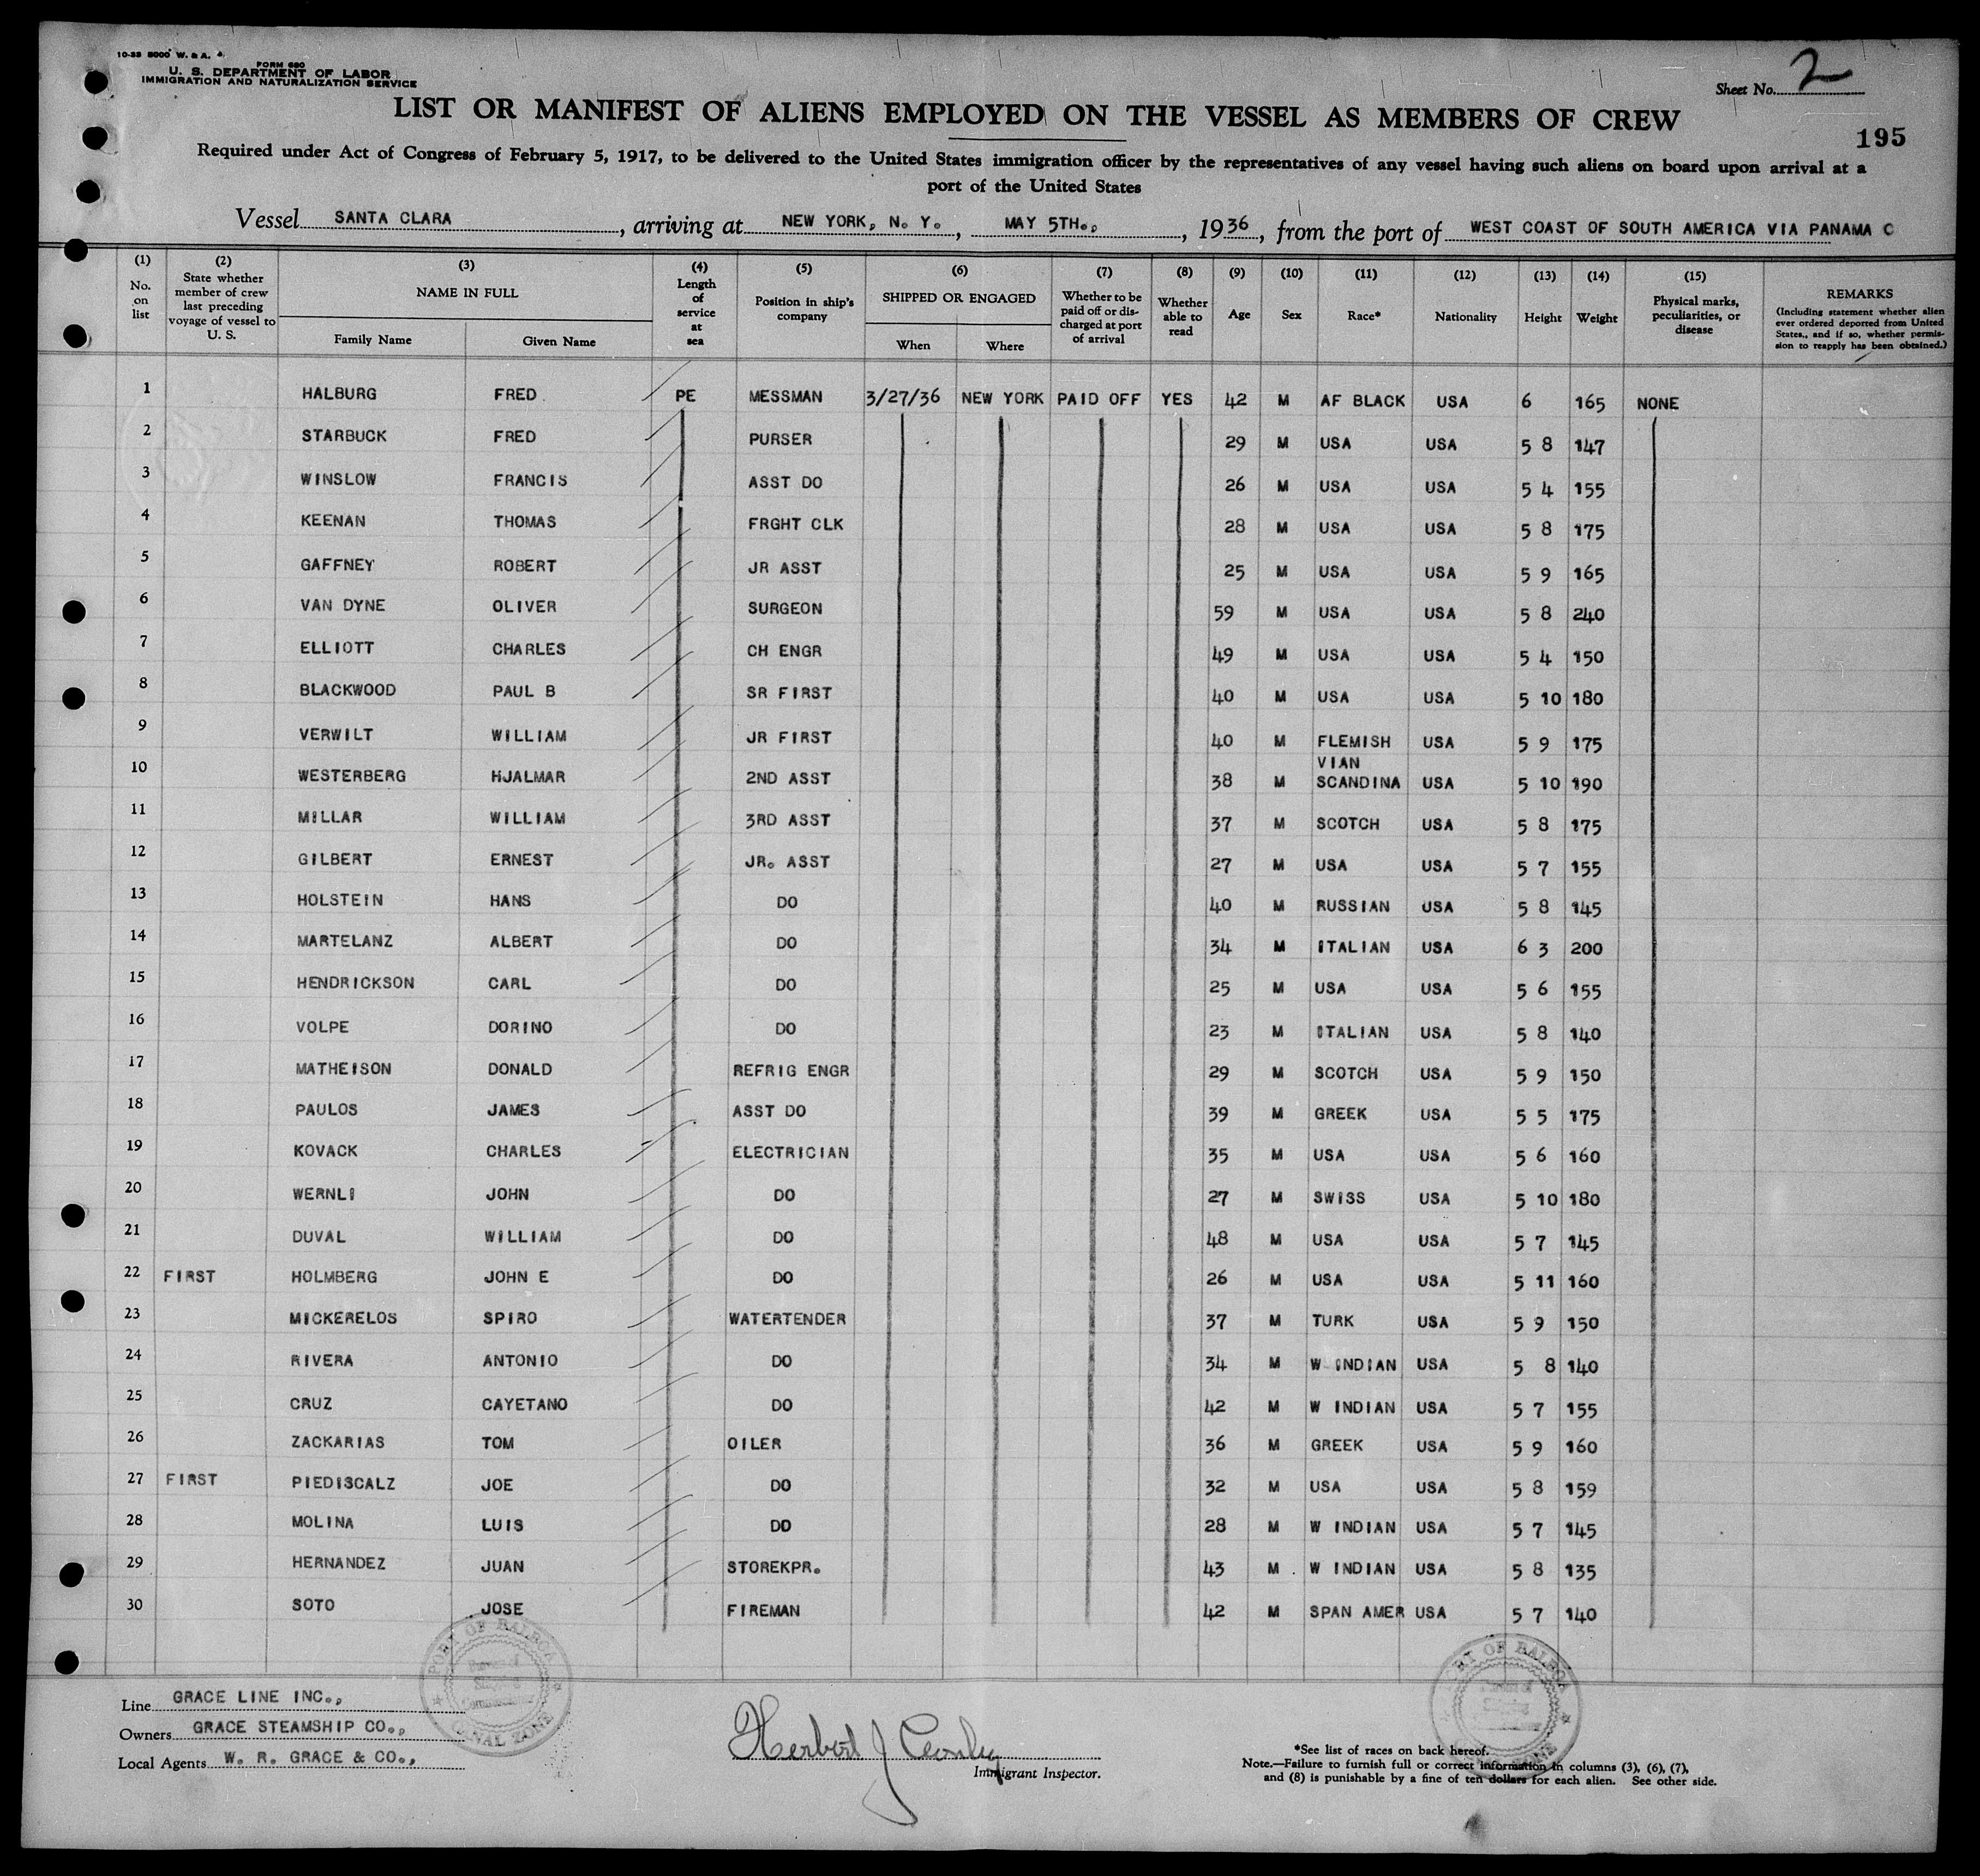 10-35 5000 W. & A.
FORM 680
U. S. DEPARTMENT OF LABOR
IMMIGRATION AND NATURALIZATION SERVICE
Sheet No. 2
LIST OR MANIFEST OF ALIENS EMPLOYED ON THE VESSEL AS MEMBERS OF CREW
195
Required under Act of Congress of February 5, 1917, to be delivered to the United States immigration officer by the representatives of any vessel having such aliens on board upon arrival at a
port of the United States
Vessel SANTA CLARA, arriving at NEW YORK, N. Y., MAY 5TH., 1936, from the port of WEST COAST OF SOUTH AMERICA VIA PANAMA C
(1) No. on list (2) State whether member of crew last preceding voyage of vessel to U. S. (3) NAME IN FULL Family Name Given Name (4) Length of service at sea (5) Position in ship's company (6) SHIPPED OR ENGAGED When Where (7) Whether to be paid off or discharged at port of arrival (8) Whether able to read (9) Age (10) Sex (11) Race* (12) Nationality (13) Height (14) Weight (15) Physical marks, peculiarities, or disease REMARKS (Including statement whether alien ever ordered deported from United States, and if so, whether permission to reapply has been obtained.)
1 HALBURG FRED PE MESSMAN 3/27/36 NEW YORK PAID OFF YES 42 M AF BLACK USA 6 165 NONE
2 STARBUCK FRED PURSER 29 M USA USA 5 8 147
3 WINSLOW FRANCIS ASST DO 26 M USA USA 5 4 155
4 KEENAN THOMAS FRGHT CLK 28 M USA USA 5 8 175
5 GAFFNEY ROBERT JR ASST 25 M USA USA 5 9 165
6 VAN DYNE OLIVER SURGEON 59 M USA USA 5 8 240
7 ELLIOTT CHARLES CH ENGR 49 M USA USA 5 4 150
8 BLACKWOOD PAUL B SR FIRST 40 M USA USA 5 10 180
9 VERWILT WILLIAM JR FIRST 40 M FLEMISH USA 5 9 175
VIAN
10 WESTERBERG HJALMAR 2ND ASST 38 M SCANDINA USA 5 10 190
11 MILLAR WILLIAM 3RD ASST 37 M SCOTCH USA 5 8 175
12 GILBERT ERNEST JR. ASST 27 M USA USA 5 7 155
13 HOLSTEIN HANS DO 40 M RUSSIAN USA 5 8 145
14 MARTELANZ ALBERT DO 34 M ITALIAN USA 6 3 200
15 HENDRICKSON CARL DO 25 M USA USA 5 6 155
16 VOLPE DORINO DO 23 M ITALIAN USA 5 8 140
17 MATHEISON DONALD REFRIG ENGR 29 M SCOTCH USA 5 9 150
18 PAULOS JAMES ASST DO 39 M GREEK USA 5 5 175
19 KOVACK CHARLES ELECTRICIAN 35 M USA USA 5 6 160
20 WERNLI JOHN DO 27 M SWISS USA 5 10 180
21 DUVAL WILLIAM DO 48 M USA USA 5 7 145
22 FIRST HOLMBERG JOHN E DO 26 M USA USA 5 11 160
23 MICKERELOS SPIRO WATERTENDER 37 M TURK USA 5 9 150
24 RIVERA ANTONIO DO 34 M W INDIAN USA 5 8 140
25 CRUZ CAYETANO DO 42 M W INDIAN USA 5 7 155
26 ZACKARIAS TOM OILER 36 M GREEK USA 5 9 160
27 FIRST PIEDISCALZ JOE DO 32 M USA USA 5 8 159
28 MOLINA LUIS DO 28 M W INDIAN USA 5 7 145
29 HERNANDEZ JUAN STOREKPR. 43 M W INDIAN USA 5 8 135
30 SOTO JOSE FIREMAN 42 M SPAN AMER USA 5 7 140
PORT OF BALBOA CANAL ZONE
PORT OF BALBOA
Line GRACE LINE INC.,
Owners GRACE STEAMSHIP CO.,
Local Agents W. R. GRACE & CO.,
Herbert J
Immigrant Inspector.
*See list of races on back hereof.
Note.—Failure to furnish full or correct information in columns (3), (6), (7),
and (8) is punishable by a fine of ten dollars for each alien. See other side.